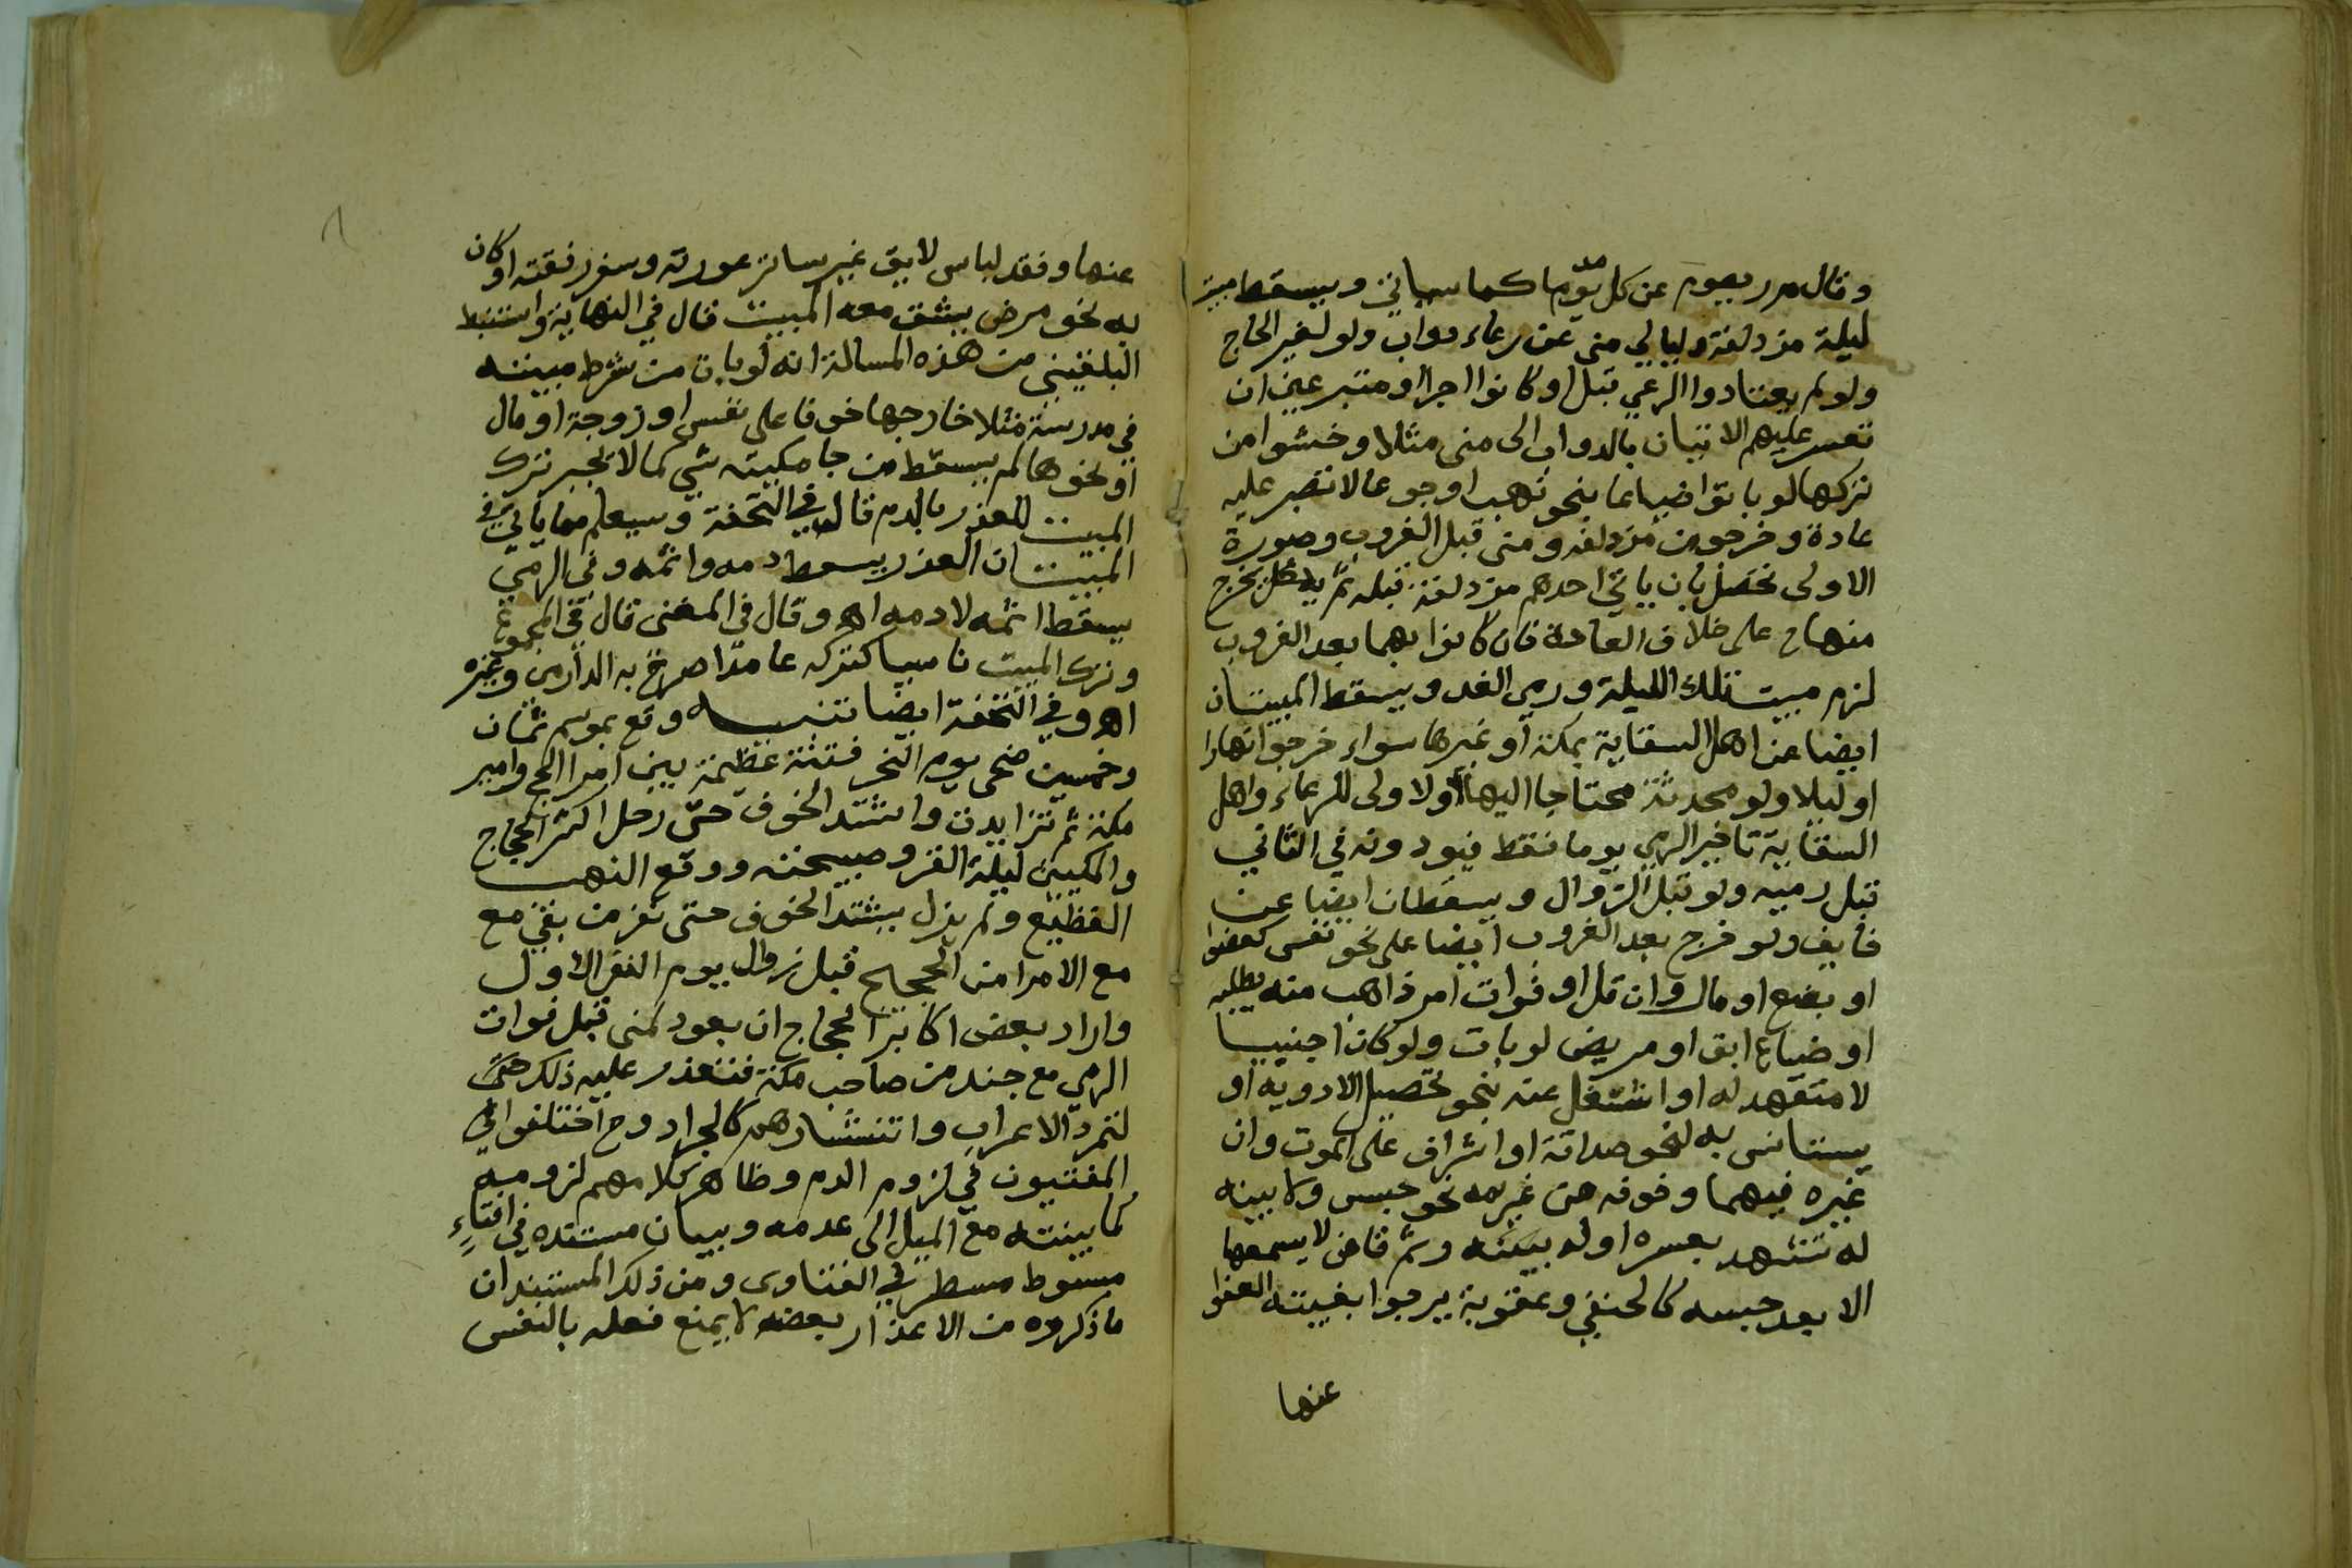 وقال مر ربصوم عن كل مد يوما كما سياتي ويسقط مبيت
ليلة مزدلفة وليالي منى عن رعاء دواب ولو لغير الحاج
ولو لم يعتادوا الرعي قبل او كانوا اجرا او متبرعين ان
تعسر عليهم الاتيان بالدواب الى منى مثلا وخشوا من
تركها لو باتوا ضياعا بنحو نهب او جوعا لا تصبر عليه
عادة وخرجو من مزدلفه ومنى قبل الغروب وصورة
الاولى تحصل بان ياتي احدهم مزدلفة قبله ثم يخرج
منها ح على خلاف العادة فان كانوا بهما بعد الغروب
لزم مبيت تلك الليلة ورمي الغد ويسقط المبيتان
ايضا عن اهل السقاية بمكة او غيرها سواء خرجوا نهارا
او ليلا ولو محدثة محتاجا اليها والاولى للرعاء واهل
السقاية تاخير الرمي يوما فقط فيودونه في الثاني
قبل رميه ولو قبل الزوال ويسقطان ايضا عن
خايف ولو خرج بعد الغروب ايضا على نحو نفس كعضو
او بضع او مال وان قل او فوات امر ذاهب منه يطلبه
او ضياع ابق او مريض لو بات ولو كان اجنبيا
لا متعهد له او اشتغل عنه بنحو تحصيل الادوية او
يستانس به لنحو صداقة او اشراف على الموت وان
غيره فيهما وخوف من غريمه نحو حبس ولا بينه
له تشهد بعسره او له بينه وثم قاض لا يسمعها
الا بعد حبسه كالحنفي وعقوبة يرجوا بغيبته العفو
عنها
عنها وفقد لباس لايق غير ساتر عورته وسفر رفقته او كان
به نحو مرض يشق معه المبيت قال في النهاية واستنبط
البلقيني من هذه المسالة انه لو بات من شرط مبيته
في مدرسة مثلا خارجها خوفا على نفس او زوجة او مال
او نحوها لم يسقط من جامكيته شي كما لا يجبر ترك
المبيت للعذر بالدم قاله في التحفة وسيعلم مما ياتي في
المبيت ان العذر يسقط دمه واثمه وفي الرمي
يسقط اثمه لا دمه اه وقال في المغنى قال في المجموع
وترك المبيت ناسيا كتركه عامدا صرح به الدارمي وغيره
اه وفي التحفة ايضا تنبيه وقع بموسم ثمان
وخمسين ضحى يوم النحر فتنة عظيمة بين امرا الحج وامير
مكة ثم تزايدت واشتد الخوف حتى رحل اكثر الحجاج
والمكيين ليلة القر وصبيحته ووقع النهب
الفظيع ولم يزل يشتد الخوف حتى نفر من بقي مع
مع الامرا من الحجيج قبل زوال يوم النفر الاول
واراد بعض اكابر الحجاج ان يعود لمنى قبل فوات
الرمي مع جند من صاحب مكة فتعذر عليه ذلك حتى
لتمرد الاعراب وانتشارهم كالجراد وح اختلفوا
المفتيون في لزوم الدم وظاهر كلامهم لزومه
كما بينته مع الميل الى عدمه وبيان مستنده في افتاء
مبسوط مسطر في الفتاوى ومن ذلك المستند ان
ما ذكروه من الاعذار بعضه لا يمنع فعله بالنفس